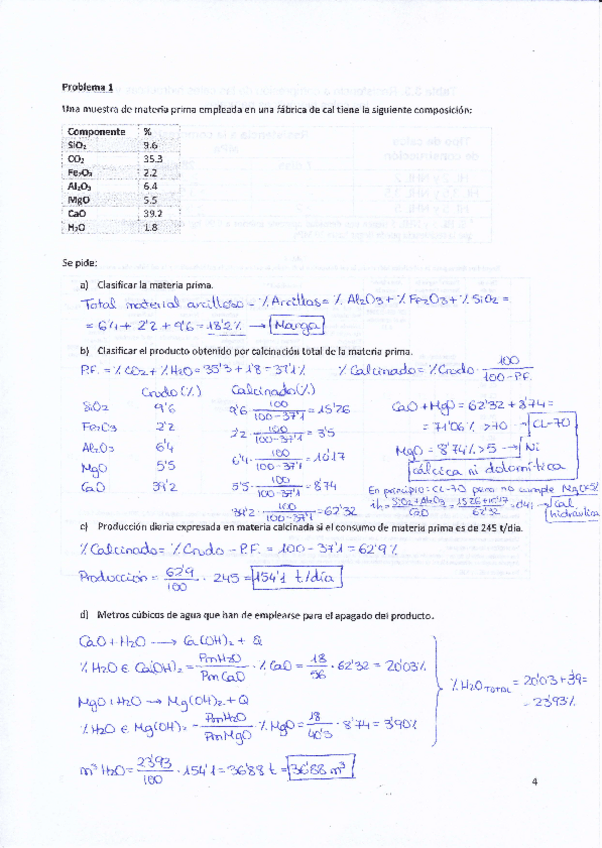 Problema 1
Una muestra de materia prima empleada en una fábrica de cal tiene la siguiente composición:
Componente %
SiO₂ 9.6
CO₂ 35.3
Fe₂O₃ 2.2
Al₂O₃ 6.4
MgO 5.5
CaO 39.2
H₂O 1.8
Se pide:
a) Clasificar la materia prima.
Total material arcilloso = % Arcillas = % Al₂O₃ + % Fe₂O₃ + % SiO₂ =
= 6'4 + 2'2 + 9'6 = 18'2% → Marga
b) Clasificar el producto obtenido por calcinación total de la materia prima.
P.F. = % CO₂ + % H₂O = 35'3 + 1'8 = 37'1% % Calcinado = % Crudo · 100 / 100 - P.F.
Crudo (%) Calcinado (%)
SiO₂ 9'6 9'6 · 100 / 100-37'1 = 15'26
Fe₂O₃ 2'2 2'2 · 100 / 100-37'1 = 3'5
Al₂O₃ 6'4 6'4 · 100 / 100-37'1 = 10'17
MgO 5'5 5'5 · 100 / 100-37'1 = 8'74
CaO 39'2 39'2 · 100 / 100-37'1 = 62'32
CaO + MgO = 62'32 + 8'74 =
= 71'06% >70 → CL-70
MgO = 8'74% > 5 → Ni
cálcica ni dolomítica
En principio = CL-70 pero no cumple MgO<5%
ih = SiO₂ + Al₂O₃ / CaO = 15'26 + 10'17 / 62'32 = 0'41 → Cal
hidráulica
c) Producción diaria expresada en materia calcinada si el consumo de materia prima es de 245 t/día.
% Calcinado = % Crudo - P.F. = 100 - 37'1 = 62'9%
Producción = 62'9 / 100 · 245 = 154'1 t/día
d) Metros cúbicos de agua que han de emplearse para el apagado del producto.
CaO + H₂O → Ca(OH)₂ + Q
% H₂O ∈ Ca(OH)₂ = PmH₂O / PmCaO · % CaO = 18 / 56 · 62'32 = 20'03%
MgO + H₂O → Mg(OH)₂ + Q
% H₂O ∈ Mg(OH)₂ = PmH₂O / PmMgO · % MgO = 18 / 40'3 · 8'74 = 3'90%
% H₂O TOTAL = 20'03 + 3'9 =
= 23'93%
m³ H₂O = 23'93 / 100 · 154'1 = 36'88 t = 36'88 m³
4